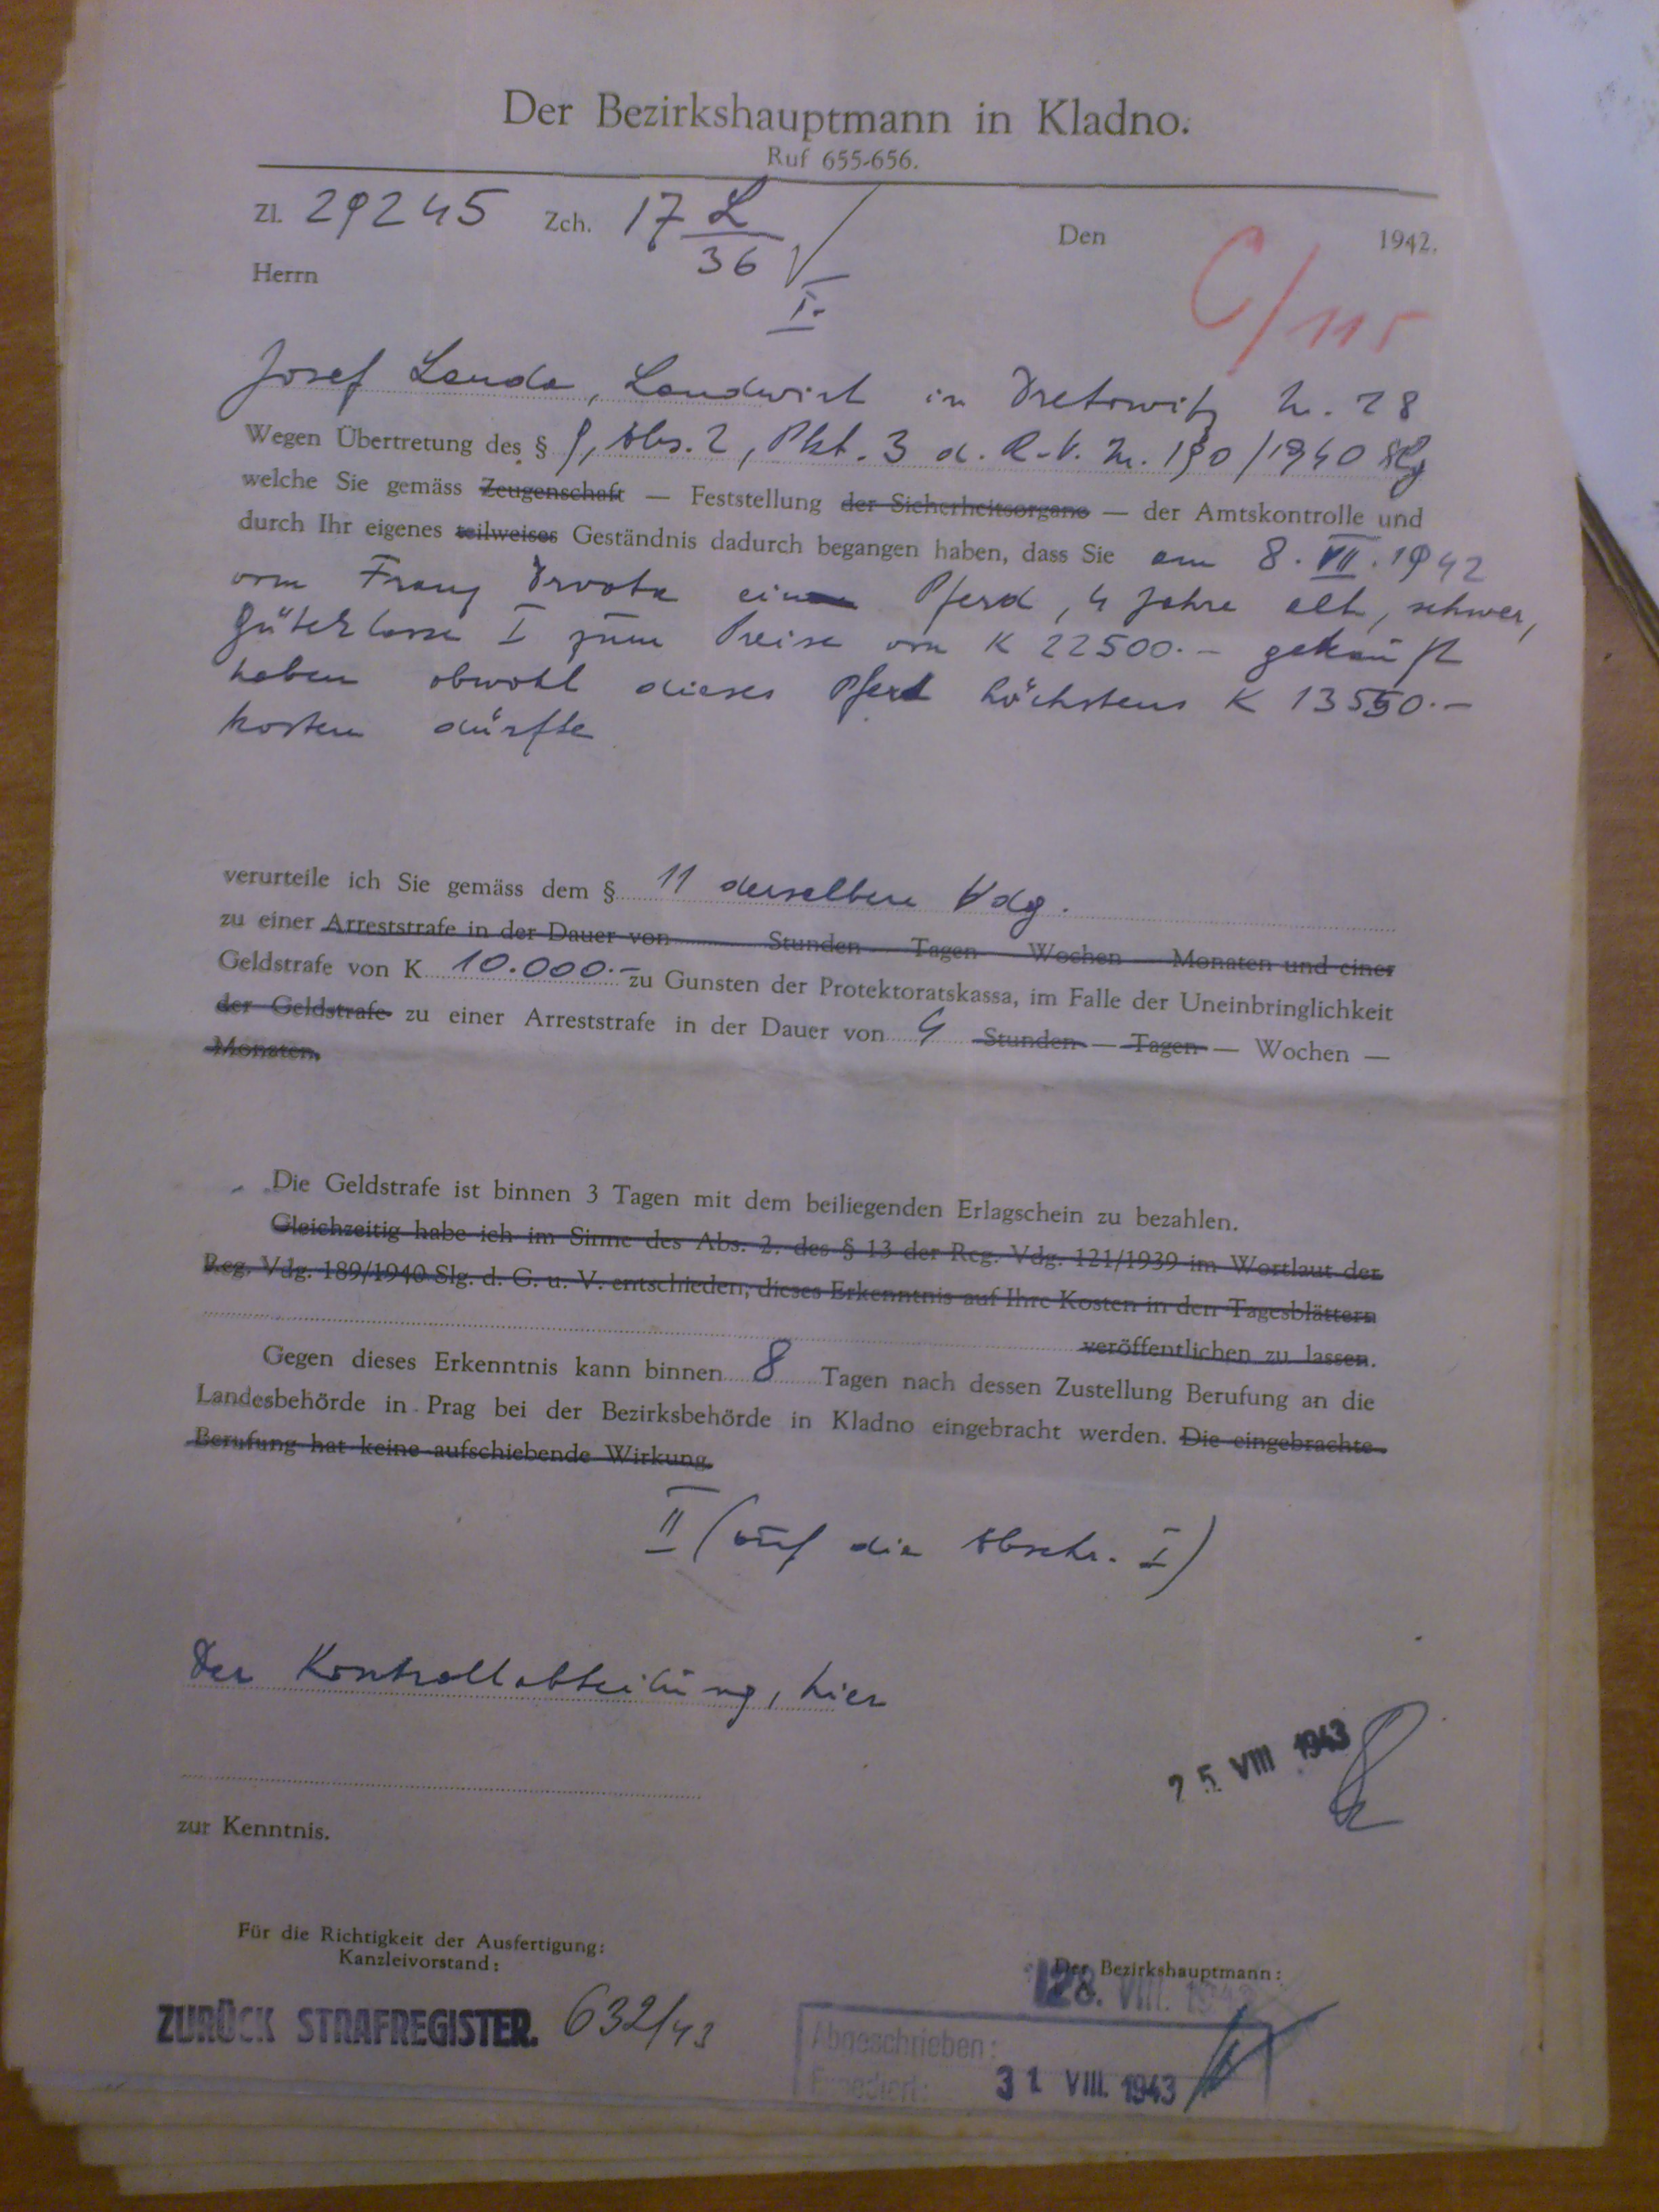 Der Bezirkshauptmann in Kladno.
Ruf 655-656.
Zl. 29245 Zch. 17 L/36
Den 1942.
Herrn
I.
C/115
Josef Landa, Landwirt in Dretowitz Nr. 28
Wegen Übertretung des § 9, Abs. 2, Pkt. 3 d. R.V. Nr. 190/1940 Slg
welche Sie gemäss Zeugenschaft — Feststellung der Sicherheitsorgane — der Amtskontrolle und
durch Ihr eigenes teilweises Geständnis dadurch begangen haben, dass Sie am 8. VII. 1942
vom Franz ein Pferd, 4 Jahre alt, schwer,
Güteklasse I zum Preise von K 22500.- gekauft
haben obwohl dieses Pferd höchstens K 13550.-
kosten dürfte
verurteile ich Sie gemäss dem § 11 derselben Vdg.
zu einer Arreststrafe in der Dauer von Stunden Tagen Wochen Monaten und einer
Geldstrafe von K 10.000.- zu Gunsten der Protektoratskassa, im Falle der Uneinbringlichkeit
der Geldstrafe zu einer Arreststrafe in der Dauer von 4 Stunden — Tagen — Wochen —
Monaten.
Die Geldstrafe ist binnen 3 Tagen mit dem beiliegenden Erlagschein zu bezahlen.
Gleichzeitig habe ich im Sinne des Abs. 2. des § 13 der Reg. Vdg. 121/1939 im Wortlaut der
Reg. Vdg. 189/1940 Slg. d. G. u. V. entschieden, dieses Erkenntnis auf Ihre Kosten in den Tagesblättern
veröffentlichen zu lassen.
Gegen dieses Erkenntnis kann binnen 8 Tagen nach dessen Zustellung Berufung an die
Landesbehörde in Prag bei der Bezirksbehörde in Kladno eingebracht werden. Die eingebrachte
Berufung hat keine aufschiebende Wirkung.
II (auf die Abschr. I)
Der Kontrollabteilung, hier
25 VIII 1943
zur Kenntnis.
Für die Richtigkeit der Ausfertigung:
Kanzleivorstand:
Der Bezirkshauptmann:
28. VIII. 1943
ZURÜCK STRAFREGISTER. 632/43
Abgeschrieben:
Expediert: 31 VIII. 1943